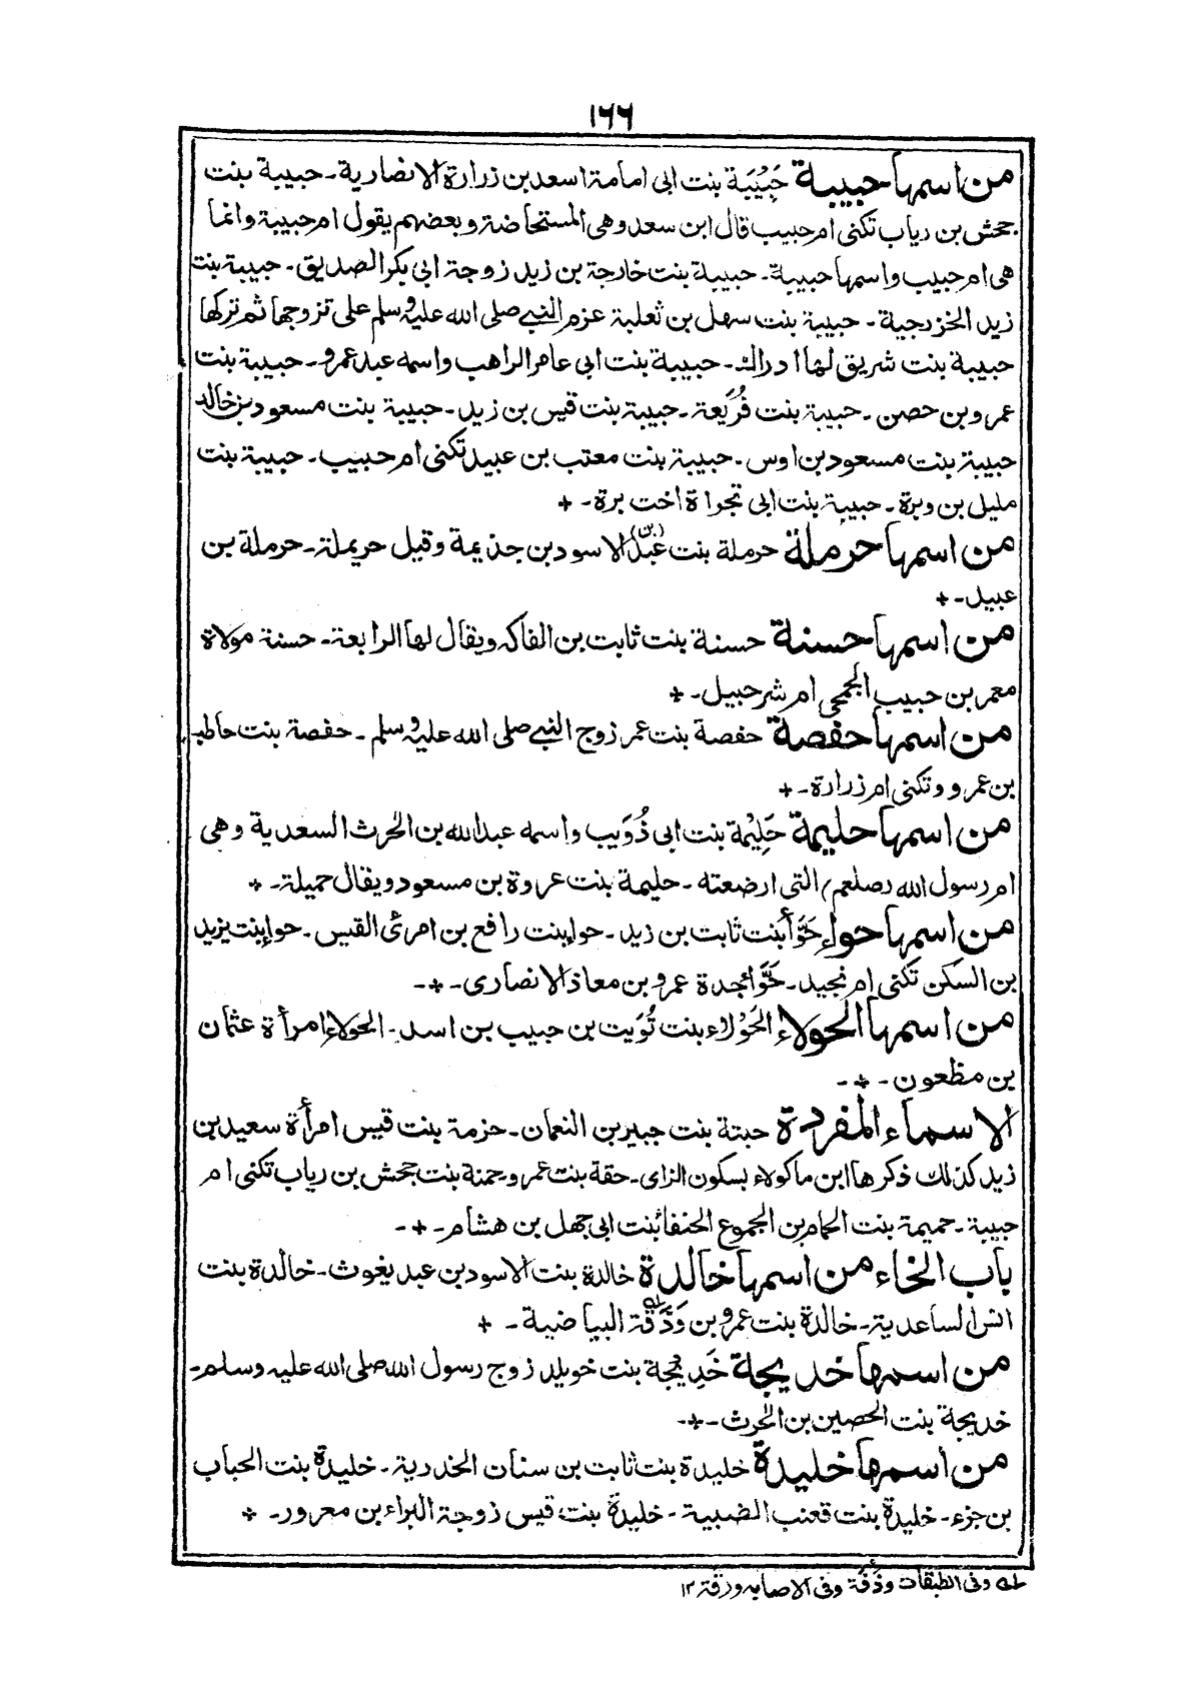 ١٦٦
من اسمها حبيبة حَبِيْبَة بنت ابى امامة اسعد بن زرارة الانصارية۔ حبيبة بنت
جحش بن رياب تكنى ام حبيب قال ابن سعد وهى المستحاضة وبعضهم يقول ام حبيبة وانما
هى ام حبيب واسمها حبيبة۔ حبيبة بنت خارجة بن زيد زوجة ابى بكر الصديق۔ حبيبة بنت
زيد الخزرجية۔ حبيبة بنت سهل بن ثعلبة عزم النبى صلى الله عليه وسلم على تزوجها ثم تركها
حبيبة بنت شريق لها ادراك۔ حبيبة بنت ابى عامر الراهب واسمه عبد عمرو۔ حبيبة بنت
عمرو بن حصن۔ حبيبة بنت فُرَيْعة۔ حبيبة بنت قيس بن زيد۔ حبيبة بنت مسعود بن خالد
حبيبة بنت مسعود بن اوس۔ حبيبة بنت معتب بن عبيد تكنى ام حبيب۔ حبيبة بنت
مليل بن وبرة۔ حبيبة بنت ابى تجراة اخت برة۔ +
من اسمها حرملة حرملة بنت عبد (بن) الاسود بن جذيمة وقيل حريملة۔ حرملة بن
عبيل۔ +
من اسمها حسنة حسنة بنت ثابت بن الفاكه ويقال لها الرابعة۔ حسنة مولاة
معمر بن حبيب الجمحى ام شرحبيل۔ +
من اسمها حفصة حفصة بنت عمر زوج النبى صلى الله عليه وسلم۔ حفصة بنت حاطب
بن عمرو وتكنى ام زرارة۔ +
من اسمها حليمة حَلِيْمة بنت ابى ذُوَيب واسمه عبد الله بن الحٰرث السعدية وهى
ام رسول الله (صلعم) التى ارضعته۔ حليمة بنت عروة بن مسعود ويقال حميلة۔ +
من اسمها حواء حَوَّأ بنت ثابت بن زيد۔ حواء بنت رافع بن امرئ القيس۔ حواء بنت يزيد
بن السَكَن تَكنى ام نجيد۔ حَوَّاء جدة عمرو بن معاذ الانصارى۔ +۔
من اسمها الحولاء الحَوْلاء بنت تُوَيت بن حبيب بن اسد۔ الحولاء امرأة عثمان
بن مظعون۔ +۔
الاسماء المفردة حبتة بنت جبير بن النعمان۔ حزمة بنت قيس امرأة سعيد بن
زيد كذلك ذكرها ابن ماكولاء بسكون الزاى۔ حقة بنت عمرو۔ حمنة بنت جحش بن رياب تكنى ام
حبيبة۔ حميمة بنت الحمام بن الجموع الحنفاء بنت ابى جهل بن هشام۔ +۔
باب الخاء من اسمها خالدة خالدة بنت الاسود بن عبد يغوث۔ خالدة بنت
انس الساعدية۔ خالدة بنت عمرو بن وَدْقَة له البياضية۔ +
من اسمها خديجة خَدِيْجة بنت خويلد زوج رسول الله صلى الله عليه وسلم۔
خديجة بنت الحصين بن الحٰرث۔ +۔
من اسمها خليدة خليدة بنت ثابت بن سنان الخدرية۔ خليدة بنت الحباب
بن جزء۔ خليدة بنت قعنب الضبية۔ خليدة بنت قيس زوجة البراء بن معرور۔ +
له وفى الطبقات وذُفَة وفى الاصابه ورقة ١٢